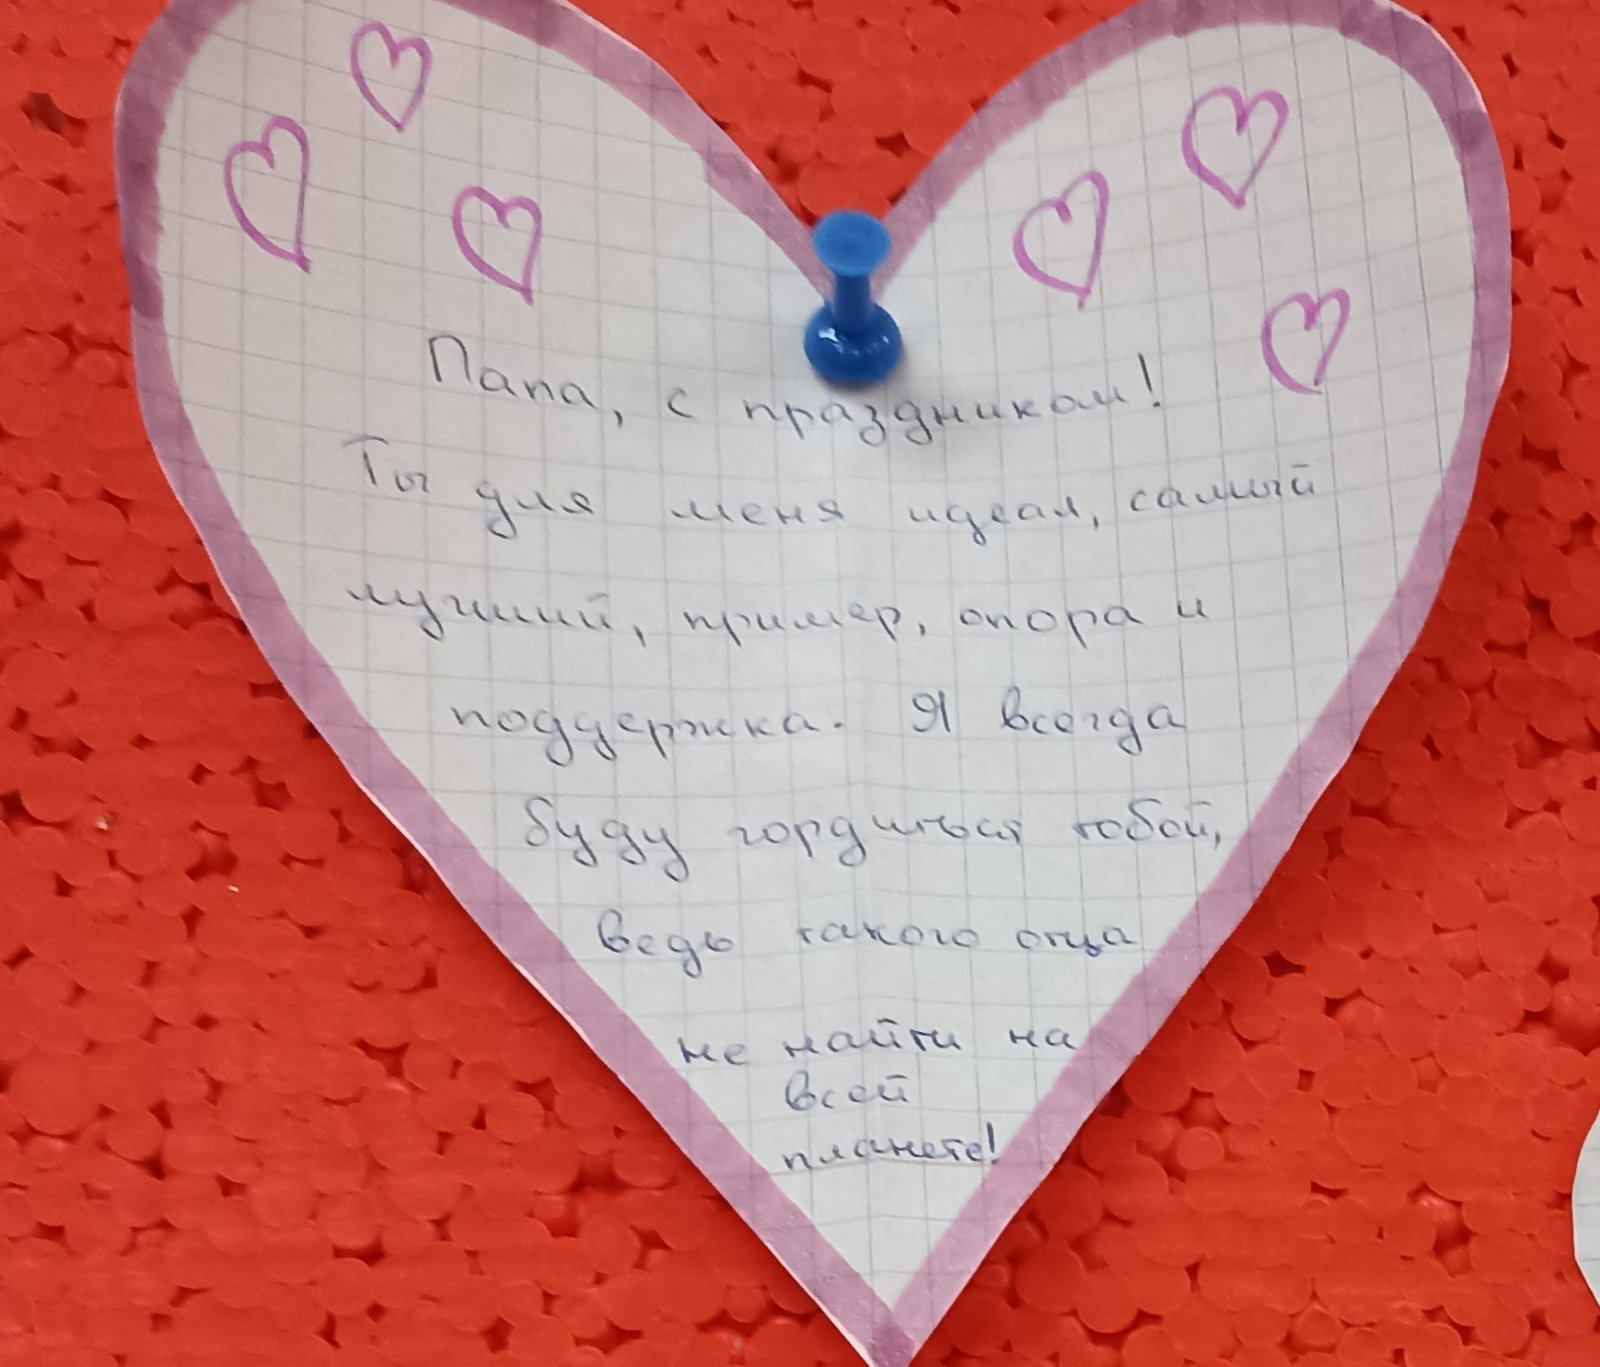 Папа, с праздником!
Ты для меня идеал, самый
лучший, пример, опора и
поддержка. Я всегда
буду гордиться тобой,
ведь такого отца
не найти на
всей
планете!